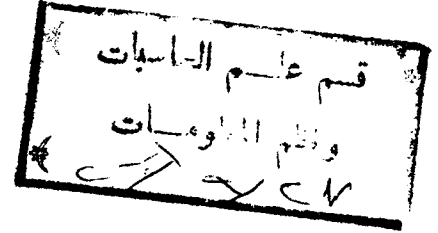 قسم علم الحاسبات
ونظم المعلومات